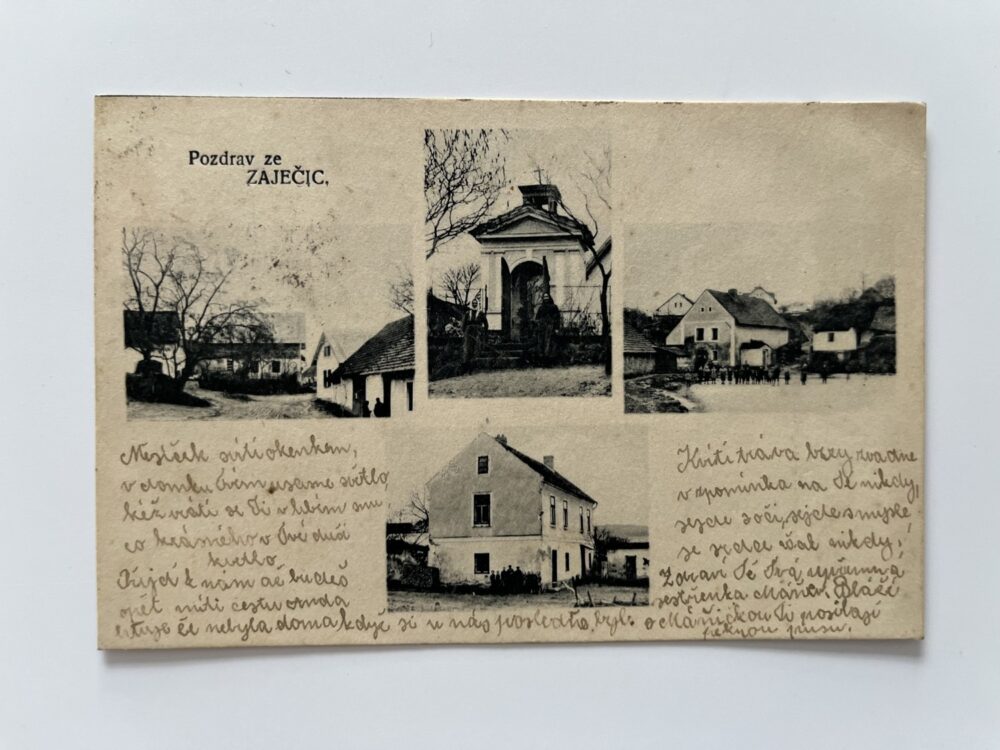 Pozdrav ze
ZAJEČIC.
Mesíček svítí okenkem,
v domku Tvém usne světlo
kéž vrátí se Ti v libém snu
co krásného v Tvé duši
kvetlo.
Přijď k nám až budeš
opět míti cestu
že nebyla doma když si u nás
Kvítí tráva brzy zvadne
vzpomínka na Tě nikdy,
sejde s očí, sejde s mysle,
se srdce však nikdy,
Zdraví Tě Tvá upřímná
sestřenka
Máničkou Ti posílají
pěknou pusu.